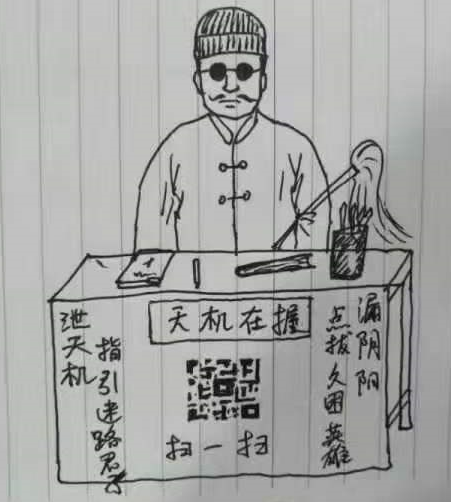 天机在握
泄天机
指引迷路君子
漏阴阳
点拔久困英雄
扫一扫